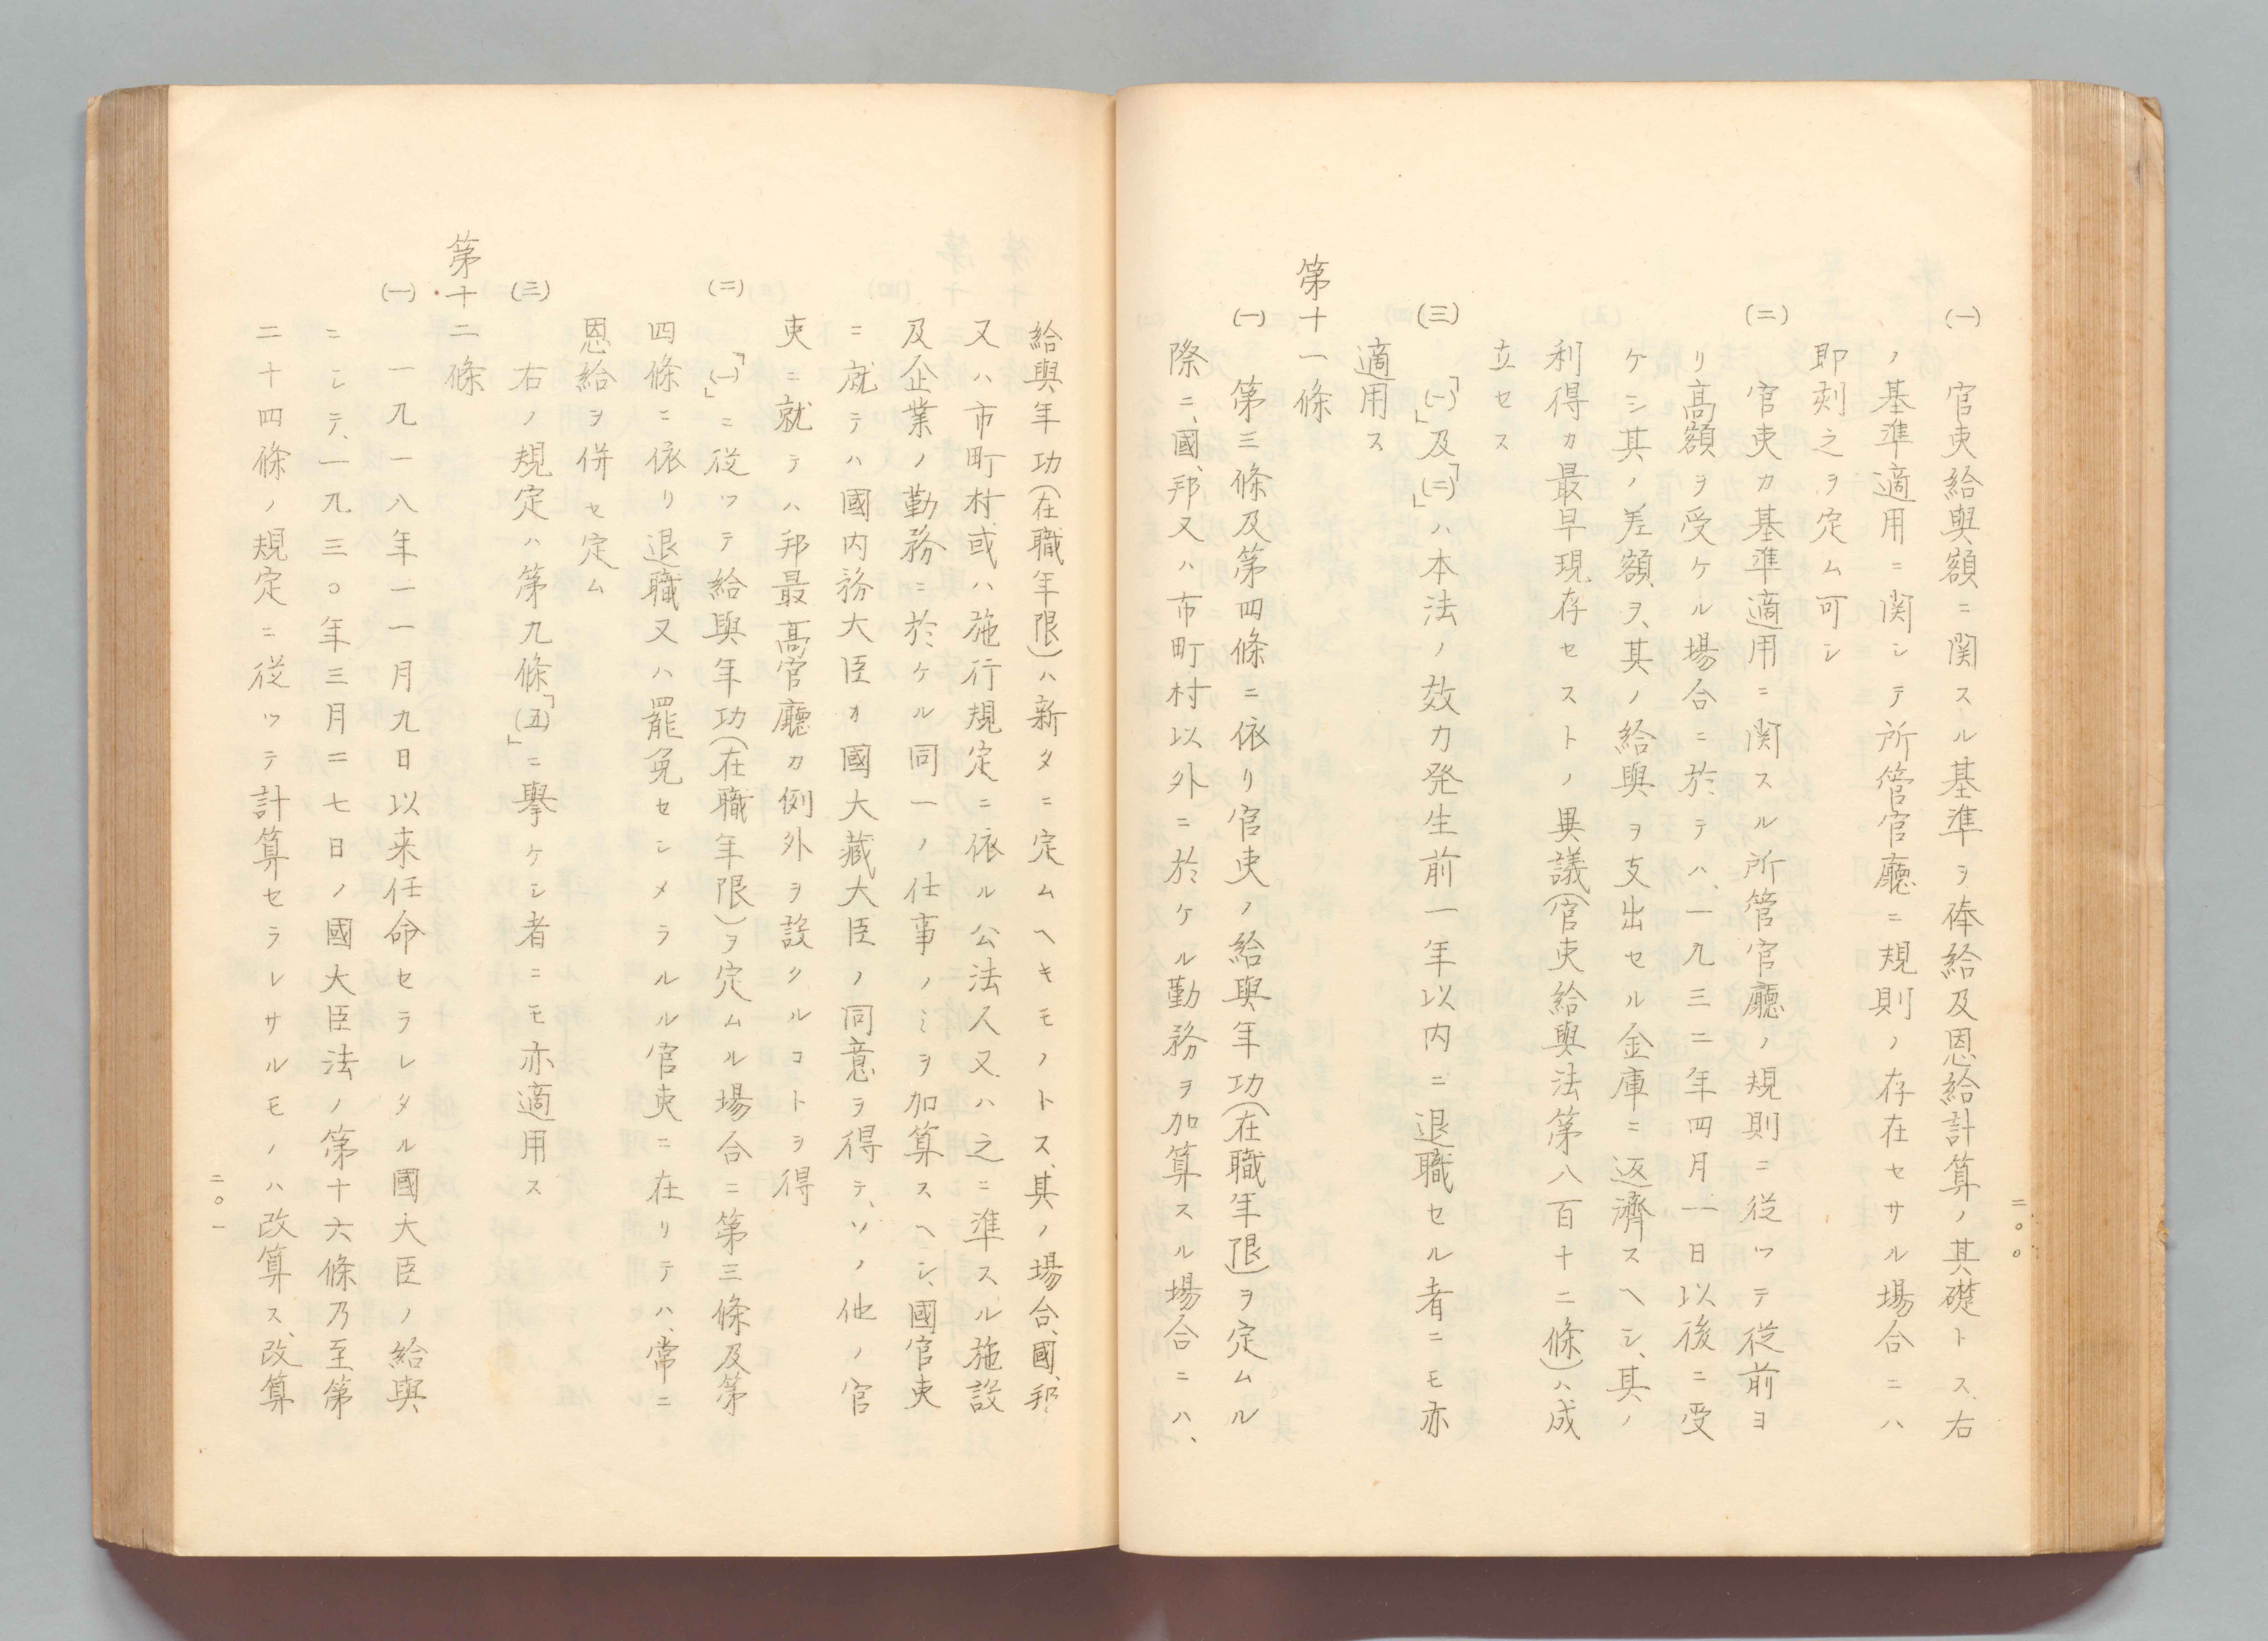 二〇〇
(一) 官吏給與額ニ関スル基準ヲ俸給及恩給計算ノ其礎トス、右
ノ基準適用ニ関シテ所管官廳ニ規則ノ存在セサル場合ニハ
即刻之ヲ定ム可シ
(二) 官吏カ基準適用ニ関スル所管官廳ノ規則ニ従ツテ従前ヨ
リ高額ヲ受ケル場合ニ於テハ、一九三二年四月一日以後ニ受
ケシ其ノ差額ヲ、其ノ給與ヲ支出セル金庫ニ返濟スヘシ、其ノ
利得カ最早現存セストノ異議(官吏給與法第八百十二條)ハ成
立セス
(三) 「(一)」及「(二)」ハ本法ノ效力発生前一年以内ニ退職セル者ニモ亦
適用ス
第十一條
(一) 第三條及第四條ニ依リ官吏ノ給與年功(在職年限)ヲ定ムル
際ニ、國、邦又ハ市町村以外ニ於ケル勤務ヲ加算スル場合ニハ、
給與年功(在職年限)ハ新タニ定ムヘキモノトス、其ノ場合、國、邦
又ハ市町村或ハ施行規定ニ依ル公法人又ハ之ニ準スル施設
及企業ノ勤務ニ於ケル同一ノ仕事ノミヲ加算スヘシ、國官吏
ニ就テハ國内務大臣カ國大藏大臣ノ同意ヲ得テ、ソノ他ノ官
吏ニ就テハ邦最高官廳カ例外ヲ設クルコトヲ得
(二) 「(一)」ニ従ツテ給與年功(在職年限)ヲ定ムル場合ニ第三條及第
四條ニ依リ退職又ハ罷免セシメラルル官吏ニ在リテハ、常ニ
恩給ヲ併セ定ム
(三) 右ノ規定ハ第九條「(五)」ニ擧ケシ者ニモ亦適用ス
第十二條
(一) 一九一八年一一月九日以来任命セラレタル國大臣ノ給與
ニシテ、一九三〇年三月二七日ノ國大臣法ノ第十六條乃至第
二十四條ノ規定ニ従ツテ計算セラレサルモノハ改算ス、改算
二〇一